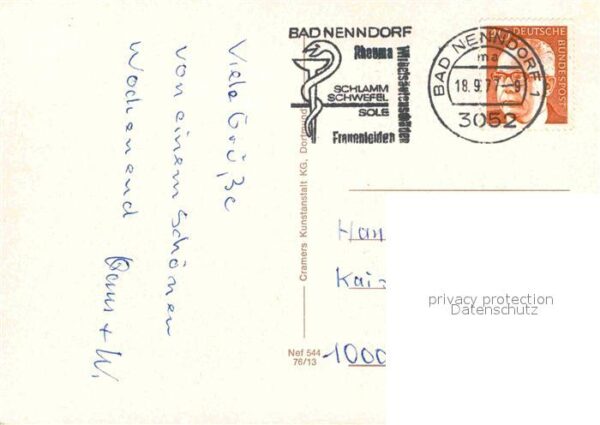 BAD NENNDORF
Rheuma
SCHLAMM
SCHWEFEL
SOLE
Frauenleiden
Wirbelsäulenschäden
BAD NENNDORF 1
ma
18.9.77-9
3052
DEUTSCHE
BUNDESPOST
Viele Grüße
von einem schönen
Wochenend
Cramers Kunstanstalt KG, Dortmund
Nef 544
76/13
Han
Kai
1000
privacy protection
Datenschutz